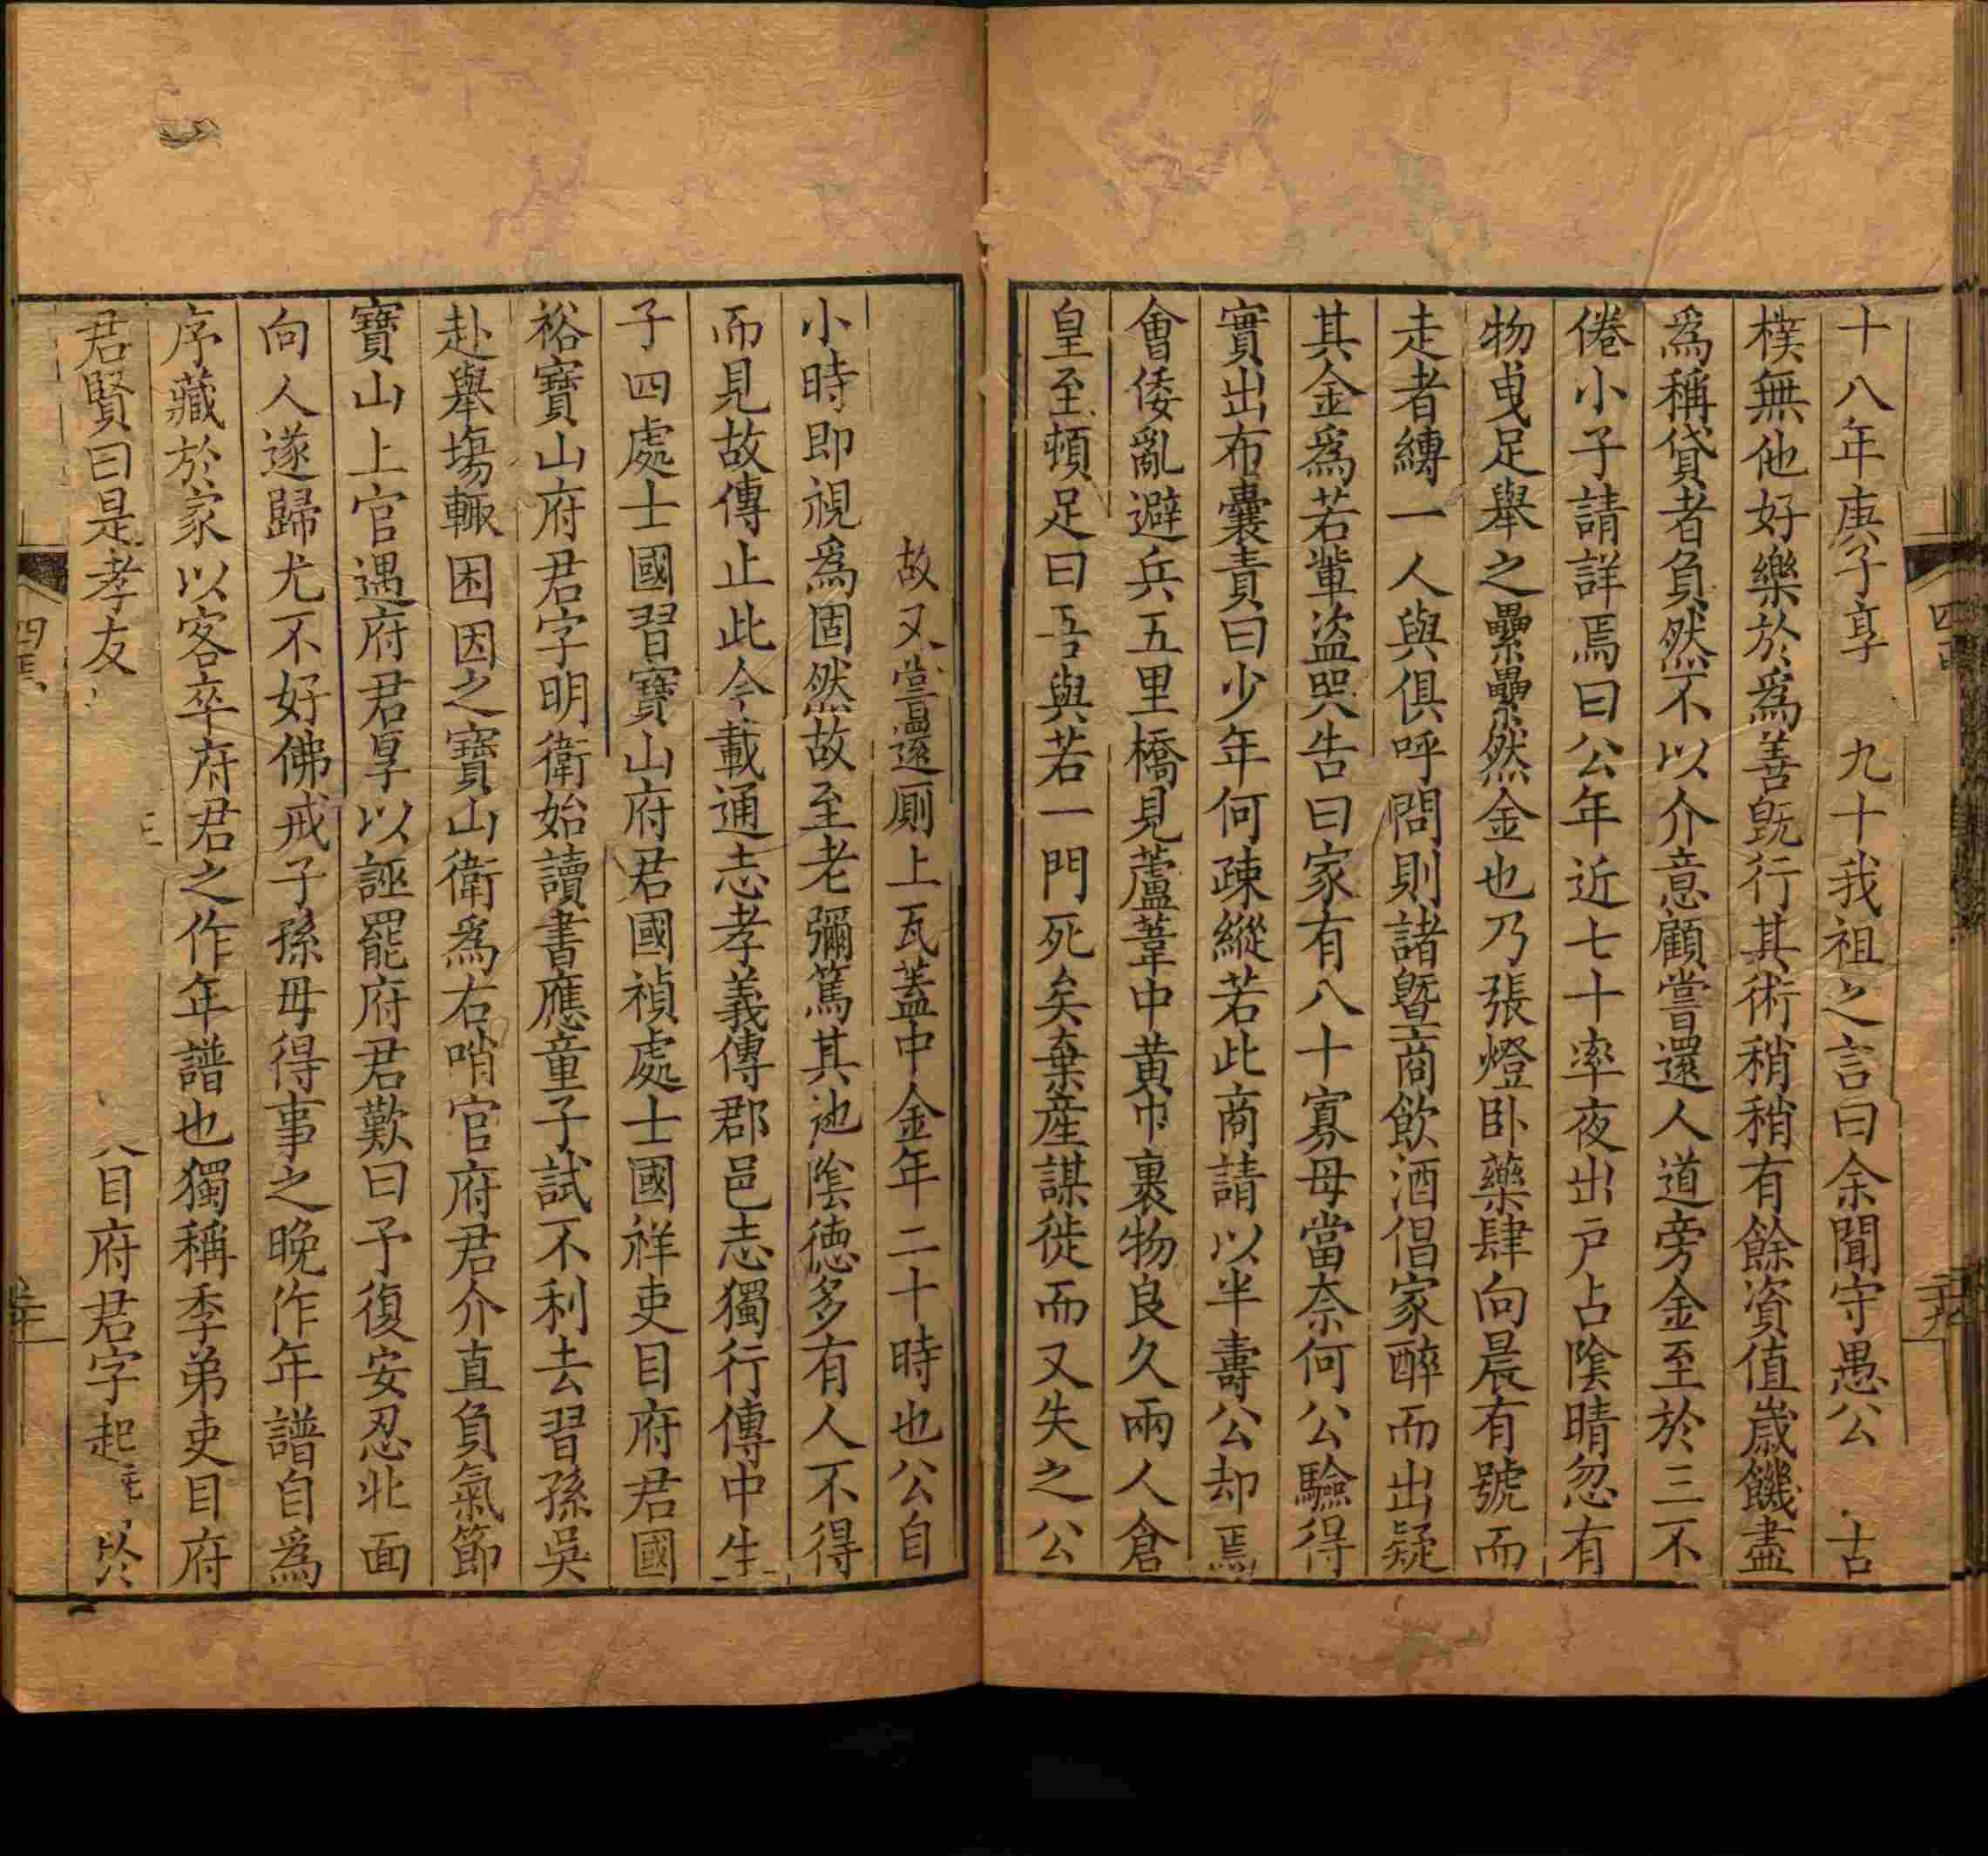 十八年庚子享 九十我祖之言曰余聞守愚公 古
樸無他好樂於爲善旣行其術稍稍有餘資值嵗饑盡
爲稱貸者負然不以介意顧嘗還人道旁金至於三不
倦小子請詳焉曰公年近七十率夜出戸占陰晴忽有
物曵足舉之纍纍然金也乃張燈卧藥肆向晨有號而
走者縛一人與俱呼問則諸曁商飲酒倡家醉而出疑
其金爲若軰盗哭告曰家有八十寡母當奈何公驗得
實出布囊責曰少年何疎縱若此商請以半壽公却焉
會倭亂避兵五里橋見蘆葦中黄巾裹物良久兩人倉
皇至頓足曰吾與若一門死矣棄産謀徙而又失之公
故又嘗還 厠上瓦葢中金年二十時也公自
小時即視爲固然故至老彌篤其他陰德多有人不得
而見故傳止此今載通志孝義傳郡邑志獨行傳中生
子四處士國習寶山府君國禎處士國祥吏目府君國
裕寶山府君字明衛始讀書應童子試不利去習孫吳
赴舉塲輙困因之寶山衛爲右哨官府君介直負氣節
寶山上官遇府君厚以誣罷府君歎曰予復安忍北面
向人遂歸尤不好佛戒子孫毋得事之晚作年譜自爲
序藏於家以客卒府君之作年譜也獨稱季弟吏目府
君賢曰是孝友 目府君字起 以
四